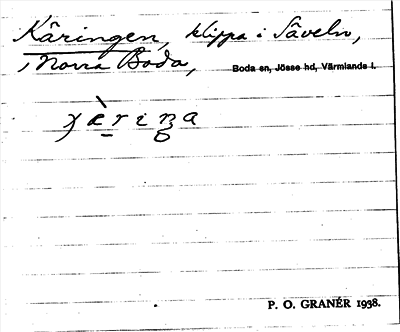 Käringen, klippa i Säveln,
i Norra Boda, Boda sn, Jösse hd, Värmlands l.
P. O. GRANÉR 1938.